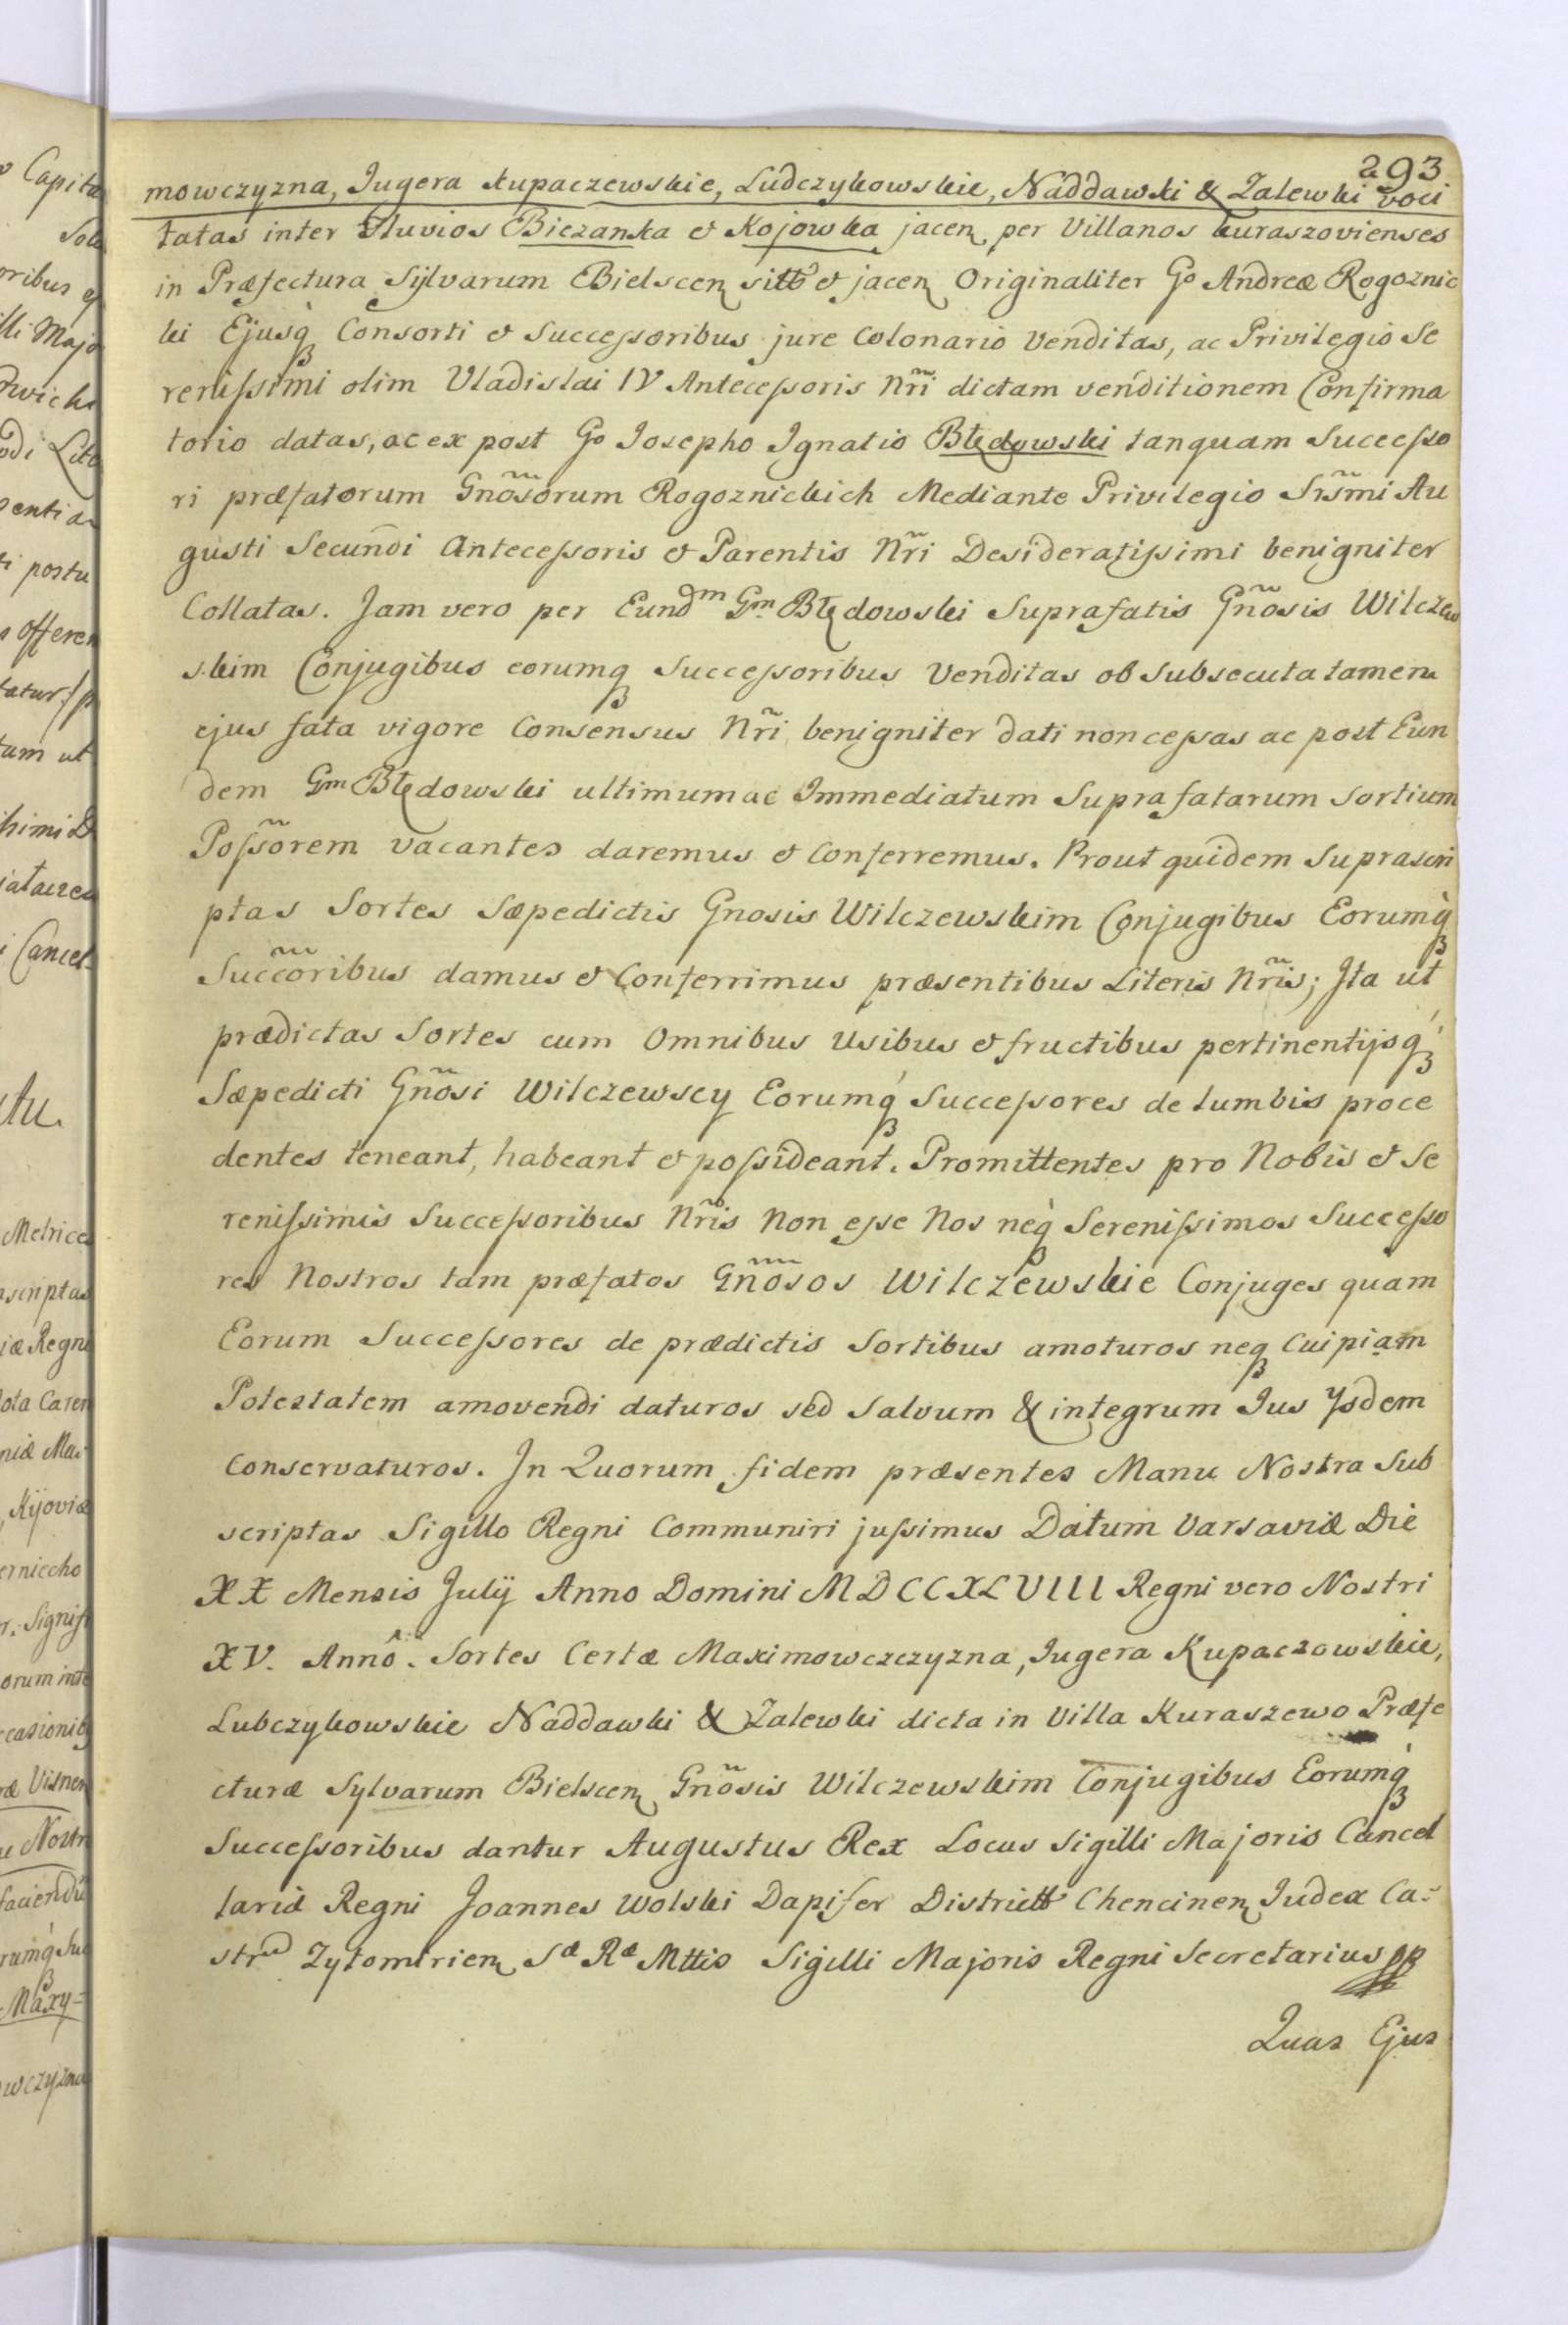 293
mowczyzna, Jugera Kupaczewskie, Ludczykowskie, Naddawki & Zalewki voci
tatas inter Fluvios Biezanka et Kojowka jacen per Villanos kuraszovienses
in Præfectura Sylvarum Bielscen sitt et jacen Originaliter Go Andreæ Rogoznic
ki Ejusq Consorti et Successoribus jure Colonario Venditas, ac Privilegio Se
renissimi olim Vladislai IV Antecessoris Nr̃i dictam venditionem Confirma
torio datas, ac ex post Go Josepho Ignatio Błędowski tanquam Successo
ri præfatorum Gnõsorum Rogoznickich Mediante Privilegio Sr̃smi Au
gusti Secundi Antecessoris et Parentis Nr̃i Desideratissimi benigniter
Collatas. Jam vero per Eundm Gm Błędowski Suprafatis Gnõsis Wilczew
skim Conjugibus eorumq Successoribus Venditas ob subsecuta tamen
ejus fata vigore Consensus Nr̃i benigniter dati non cessas ac post Eun
dem Gm Błędowski ultimum ac Immediatum Suprafatarum Sortium
Possõrem vacantes daremus et Conferremus. Prout quidem Suprascri
ptas Sortes Sæpedictis Gnosis Wilczewskim Conjugibus Eorumq
Succõribus damus et Conferrimus præsentibus Literis Nr̃is; Ita ut
prædictas Sortes cum Omnibus Usibus et fructibus pertinentijsq
Sæpedicti Gnõsi Wilczewscy Eorumq Successores de lumbis proce
dentes teneant, habeant et possideant. Promittentes pro Nobis et Se
renissimis Successoribus Nr̃is Non esse Nos neq Serenissimos Successo
res Nostros tam præfatos Gnõsos Wilczewskie Conjuges quam
Eorum Successores de prædictis Sortibus amoturos neq Cuipiam
Potestatem amovendi daturos sed Salvum & integrum Jus Ysdem
Conservaturos. In Quorum fidem præsentes Manu Nostra Sub
scriptas Sigillo Regni Communiri jussimus Datum Varsaviæ Die
XX Mensis Julij Anno Domini MDCCXLVIII Regni vero Nostri
XV. Annô. Sortes Certæ Maximowczczyzna, Jugera Kupaczowskie,
Lubczykowskie Naddawki & Zalewki dicta in Villa Kuraszewo Præfe
cturæ Sylvarum Bielscen Gnõsis Wilczewskim Conjugibus Eorumq
Successoribus dantur Augustus Rex Locus Sigilli Majoris Cancel
lariæ Regni Joannes Wolski Dapifer Districtt Chencinen Judex Ca-
strᵘ Zytomirien Sæ Ræ Mttis Sigilli Majoris Regni Secretarius
Quas Ejus